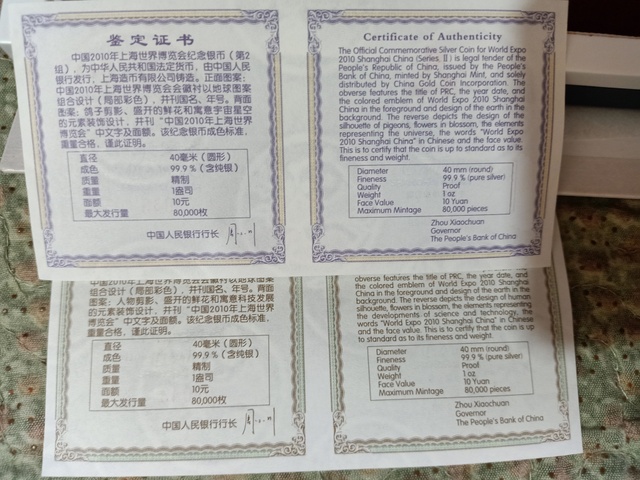 鉴定证书
中国2010年上海世界博览会纪念银币（第2
组），为中华人民共和国法定货币，由中国人民
银行发行，上海造币有限公司铸造。正面图案：
中国2010年上海世界博览会会徽衬以地球图案
组合设计（局部彩色），并刊国名、年号。背面
图案：鸽子剪影、盛开的鲜花和寓意宇宙星空
的元素装饰设计，并刊“中国2010年上海世界
博览会”中文字及面额。该纪念银币成色标准，
重量合格，谨此证明。
直径 40毫米（圆形）
成色 99.9％（含纯银）
质量 精制
重量 1盎司
面额 10元
最大发行量 80,000枚
中国人民银行行长
Certificate of Authenticity
The Official Commemorative Silver Coin for World Expo
2010 Shanghai China (Series Ⅱ) is legal tender of the
People's Republic of China, issued by the People's
Bank of China, minted by Shanghai Mint, and solely
distributed by China Gold Coin Incorporation. The
obverse features the title of PRC, the year date, and
the colored emblem of World Expo 2010 Shanghai
China in the foreground and design of the earth in the
background. The reverse depicts the design of the
silhouette of pigeons, flowers in blossom, the elements
representing the universe, the words "World Expo
2010 Shanghai China" in Chinese and the face value.
This is to certify that the coin is up to standard as to its
fineness and weight.
Diameter 40 mm (round)
Fineness 99.9 % (pure silver)
Quality Proof
Weight 1 oz
Face Value 10 Yuan
Maximum Mintage 80,000 pieces
Zhou Xiaochuan
Governor
The People's Bank of China
中国2010年上海世界博览会会徽衬以地球图案
组合设计（局部彩色），并刊国名、年号。背面
图案：人物剪影、盛开的鲜花和寓意科技发展
的元素装饰设计，并刊“中国2010年上海世界
博览会”中文字及面额。该纪念银币成色标准，
重量合格，谨此证明。
直径 40毫米（圆形）
成色 99.9％（含纯银）
质量 精制
重量 1盎司
面额 10元
最大发行量 80,000枚
中国人民银行行长
obverse features the title of PRC, the year date, and
the colored emblem of World Expo 2010 Shanghai
China in the foreground and design of the earth in the
background. The reverse depicts the design of human
silhouette, flowers in blossom, the elements representing
the developments of science and technology, the
words "World Expo 2010 Shanghai China" in Chinese
and the face value. This is to certify that the coin is up
to standard as to its fineness and weight.
Diameter 40 mm (round)
Fineness 99.9 % (pure silver)
Quality Proof
Weight 1 oz
Face Value 10 Yuan
Maximum Mintage 80,000 pieces
Zhou Xiaochuan
Governor
The People's Bank of China